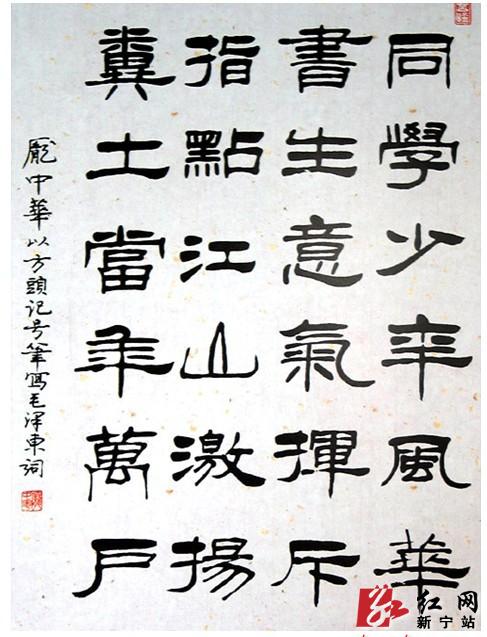 同學少年風華
書生意氣揮斥
指點江山激揚
糞土當年萬戶
龐中華以方頭记号筆寫毛泽東詞
红网
新宁站